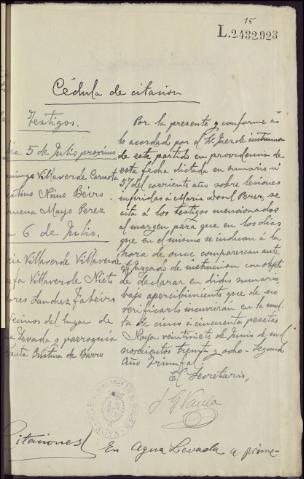 15
L.2432923
Cédula de citacion
Testigos.
día 5 de Julio proximo
Villaverde Carnota
Nimo Beiro
Mayo Perez
6 de Julio.
Villaverde Villaverde
Villaverde Nieto
Sandez Tubeiro
vecinos del lugar de
Levada y parroquia
Santa Cristina de Barro
Por la presente y conforme á
lo acordado por el Sr. Juez de instruccion
de este partido en providencia de
esta fecha dictada en sumario nº
57 del corriente año sobre lesiones
inferidas á Maria Perez, se
cita á los testigos mencionados
al margen para que en los dias
que en el mismo se indican á la
hora de once comparezcan ante
el Juzgado de instruccion con objeto
de declarar en dicho sumario
bajo apercibimiento que de no
verificarlo incurriran en la mul-
ta de cinco á cincuenta pesetas
Noya veintisiete de Junio de mil
novecientos treinta y ocho - Segundo
Año Triunfal.
El Secretario,
Citaciones) En Agua Levada a prime-